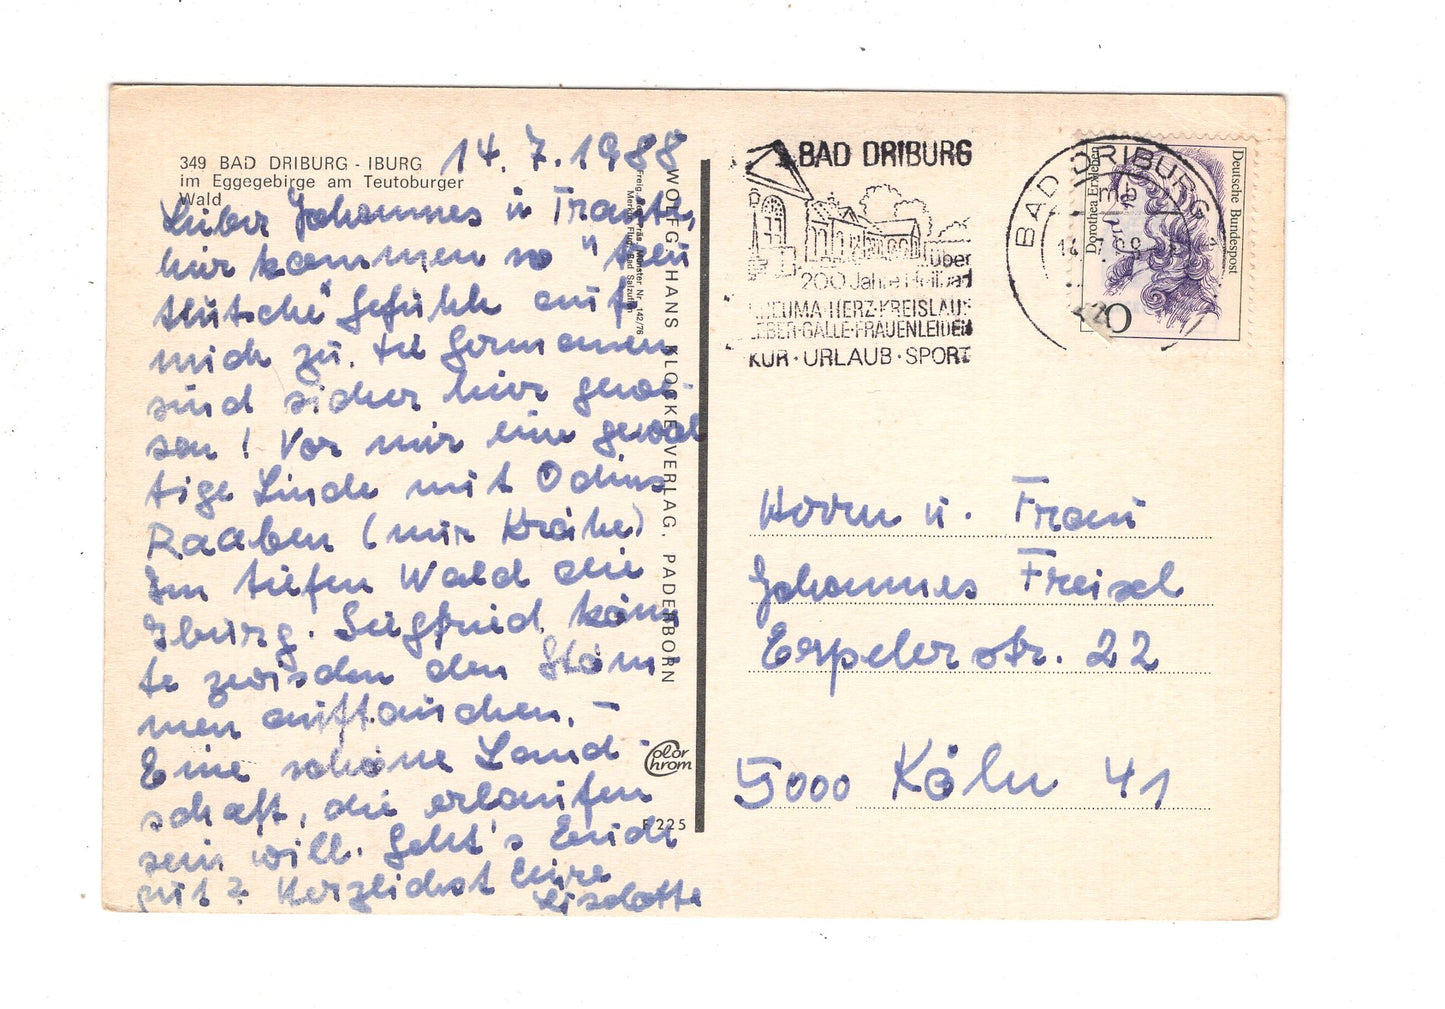 349 BAD DRIBURG - IBURG
im Eggegebirge am Teutoburger
Wald
14.7.1988
Lieber Johannes u Traute,
hier kommen so "teu
tsche" Gefühle auf
mich zu. Die Germanen
sind sicher hier gewe-
sen! Vor mir eine gewal
tige Linde mit Odins
Raaben (nur Krähe)
Im tiefen Wald die
Iburg. Siegfried könn
te zwischen den Stäm
men auftauchen. -
Eine schöne Land-
schaft, die erlaufen
sein will. Geht's Euch
gut? Herzlichst Eure
Liselotte
WOLFG. HANS KLOCKE VERLAG, PADERBORN
Color
Chrom
F 225
BAD DRIBURG
über
200 Jahre Heilbad
RHEUMA·HERZ·KREISLAUF
LEBER·GALLE·FRAUENLEIDEN
KUR · URLAUB · SPORT
BAD DRIBURG
Deutsche Bundespost
Dorothea Erxleben
Herrn u. Frau
Johannes Freisel
Erpelerstr. 22
5000 Köln 41